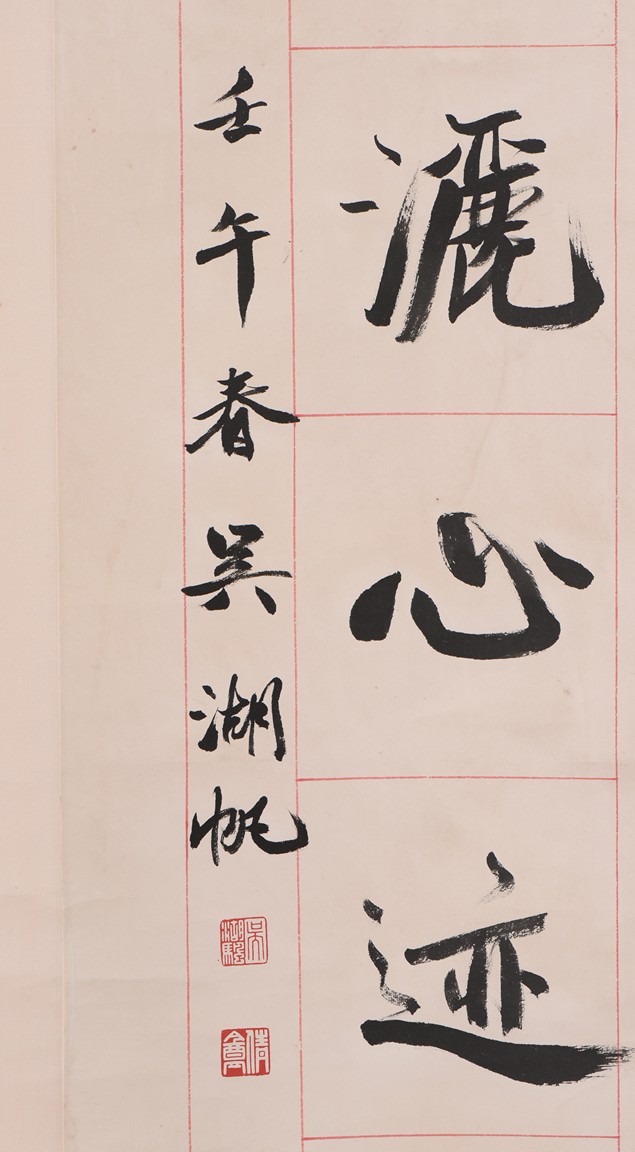 灑心迹
壬午春吳湖帆
吳湖颿
倩盦